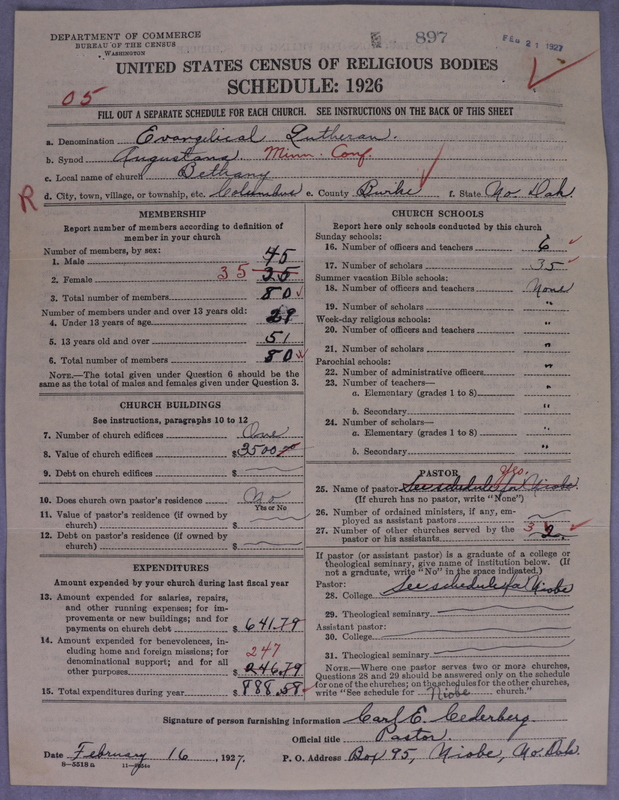 DEPARTMENT OF COMMERCE
BUREAU OF THE CENSUS
WASHINGTON
897
FEB 21 1927
UNITED STATES CENSUS OF RELIGIOUS BODIES
SCHEDULE: 1926
05
FILL OUT A SEPARATE SCHEDULE FOR EACH CHURCH. SEE INSTRUCTIONS ON THE BACK OF THIS SHEET
a. Denomination Evangelical Lutheran.
b. Synod Augustana Minn. Conf.
c. Local name of church Bethany
R
d. City, town, village, or township, etc. Columbus e. County Burke f. State No. Dak.
MEMBERSHIP
Report number of members according to definition of
member in your church
Number of members, by sex:
1. Male 45
2. Female 35 35
3. Total number of members 80
Number of members under and over 13 years old:
4. Under 13 years of age 29
5. 13 years old and over 51
6. Total number of members 80
NOTE.—The total given under Question 6 should be
same as the total of males and females given under Question 3.
CHURCH BUILDINGS
See instructions, paragraphs 10 to 12
7. Number of church edifices One
8. Value of church edifices $3500
9. Debt on church edifices $
10. Does church own pastor's residence No
Yes or No
11. Value of pastor's residence (if owned by
church) $
12. Debt on pastor's residence (if owned by
church) $
EXPENDITURES
Amount expended by your church during last fiscal year
13. Amount expended for salaries, repairs,
and other running expenses; for im-
provements or new buildings; and for
payments on church debt $641.79
14. Amount expended for benevolences, in-
cluding home and foreign missions; for
denominational support; and for all
other purposes 247 $246.79
15. Total expenditures during year $888.58
CHURCH SCHOOLS
Report here only schools conducted by this church
Sunday schools:
16. Number of officers and teachers 6
17. Number of scholars 35
Summer vacation Bible schools:
18. Number of officers and teachers None
19. Number of scholars "
Week-day religious schools:
20. Number of officers and teachers "
21. Number of scholars "
Parochial schools:
22. Number of administrative officers "
23. Number of teachers—
a. Elementary (grades 1 to 8) "
b. Secondary "
24. Number of scholars—
a. Elementary (grades 1 to 8) "
b. Secondary "
PASTOR
yes.
25. Name of pastor See schedule for Niobe
(If church has no pastor, write "None")
26. Number of ordained ministers, if any, em-
ployed as assistant pastors
27. Number of other churches served by the
pastor or his assistants 3 2.
If pastor (or assistant pastor) is a graduate of a college or
theological seminary, give name of institution below. (If
not a graduate, write "No" in the space indicated.)
Pastor:
28. College See schedule for Niobe
29. Theological seminary
Assistant pastor:
30. College
31. Theological seminary
NOTE.—Where one pastor serves two or more churches,
Questions 28 and 29 should be answered only on the schedule
for one of the churches; on the schedules for the other churches,
write "See schedule for Niobe church."
Signature of person furnishing information Carl E. Cederberg
Official title Pastor.
Date February 16, 1927. P. O. Address Box 95, Niobe, No. Dak.
8—5318 a